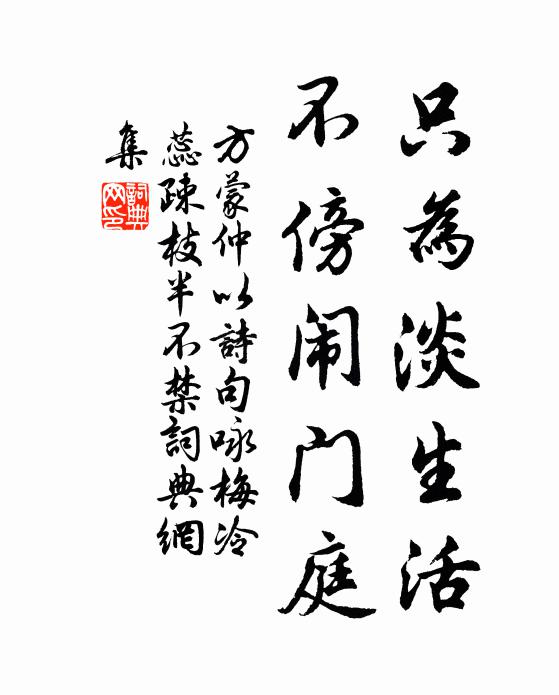 只為淡生活
不傍闹门庭
方蒙仲以詩句咏梅冷
蕊疎枝半不禁詞典網
集
詞典
网印